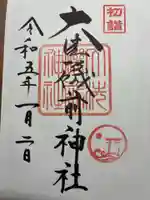 初詣
大洗磯前神社
令和五年一月二日